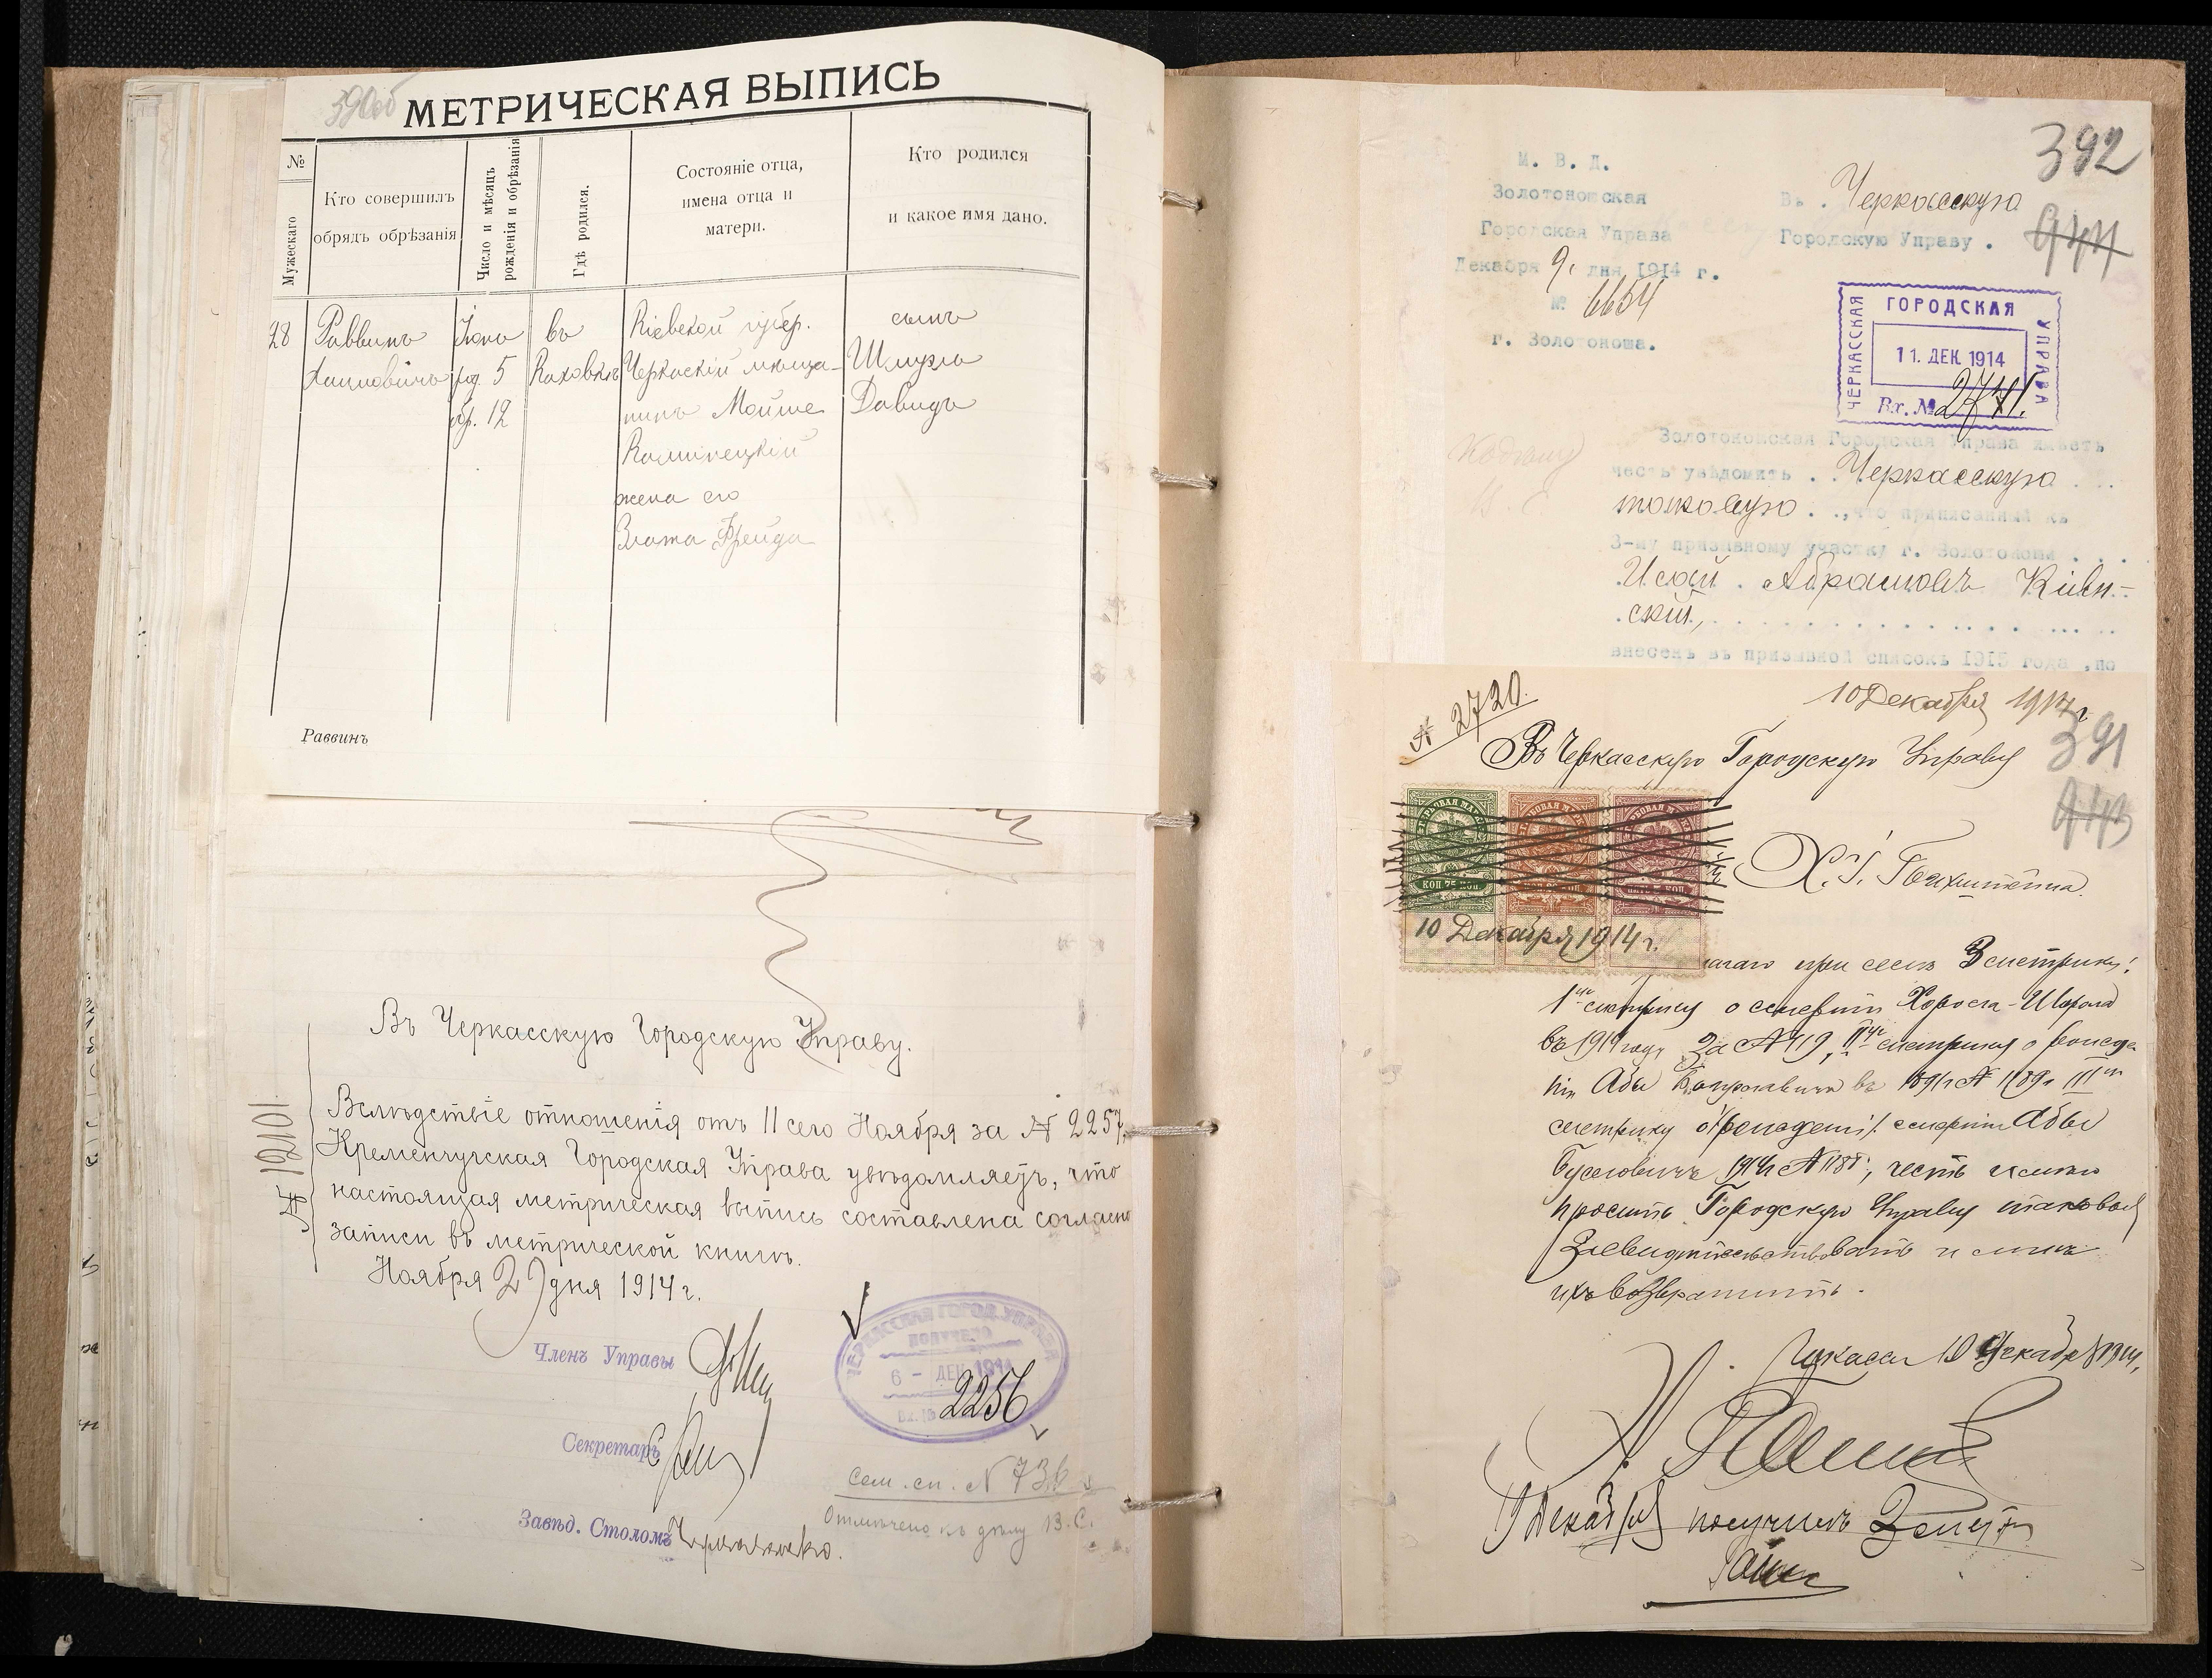 390об
МЕТРИЧЕСКАЯ ВЫПИСЬ
№
Мужескаго
Кто совершилъ
обрядъ обрѣзанія
Число и мѣсяцъ
рожденія и обрѣзанія
Гдѣ родился.
Состояніе отца,
имена отца и
матери.
Кто родился
и какое имя дано.
28
Раввинъ
Хаимовичъ
род. 5
обр. 12
въ
Каховкѣ
Кіевской губер.
Черкаскій мѣща-
нинъ Мойше
Каминецкій
жена его
Злата Фрейда
сынъ
Шмуэль
Давидъ
Раввинъ
Въ Черкасскую Городскую Управу.
№ 12101
Вслѣдствіе отношенія отъ 11 сего Ноября за № 2257,
Кременчугская Городская Управа увѣдомляетъ, что
настоящая метрическая выпись составлена согласно
записи въ метрической книгѣ.
Ноября 2 дня 1914 г.
Членъ Управы
Секретарь
Завѣд. Столомъ
ЧЕРКАССКАЯ ГОРОД. УПРАВА
ПОЛУЧЕНО
6 - ДЕК 1914
Вх. №
2256
Сем. сп. N 736
Отмѣчено къ дѣлу В.С.
392
М. В. Д.
Золотоношская
Городская Управа
Декабря 9, дня 1914 г.
№ 6654
г. Золотоноша.
Въ . Черкасскую
Городскую Управу .
944
ЧЕРКАССКАЯ
ГОРОДСКАЯ
УПРАВА
11. ДЕК. 1914
Вх. № 2741.
Золотоношская Городская Управа имѣетъ
честь увѣдомить . . Черкасскую . . .
таковую . . ,что приписанный къ
3-му призывному участку г. Золотоноши . . .
.Исай . Абрамовъ Кіев-
.скій,
внесенъ въ призывной списокъ 1915 года ,по
№ 2720.
10 Декабря 1914 г
391
Въ Черкасскую Городскую Управу
943
КОП. 75 КОП.
10 Декабря 1914 г.
при семъ 3 метрики:
1ую метрику о смерти
въ 1914 году за № 119, IIую метрику о рожде
ніи Абы въ
метрику о смерти Абы
1914 г №, честь имѣю
просить Городскую Управу таковыя
Засвидѣтельствовать и мнѣ
ихъ возвратить.
Черкассы 10 Декабря 1914,
19 Декабря получилъ